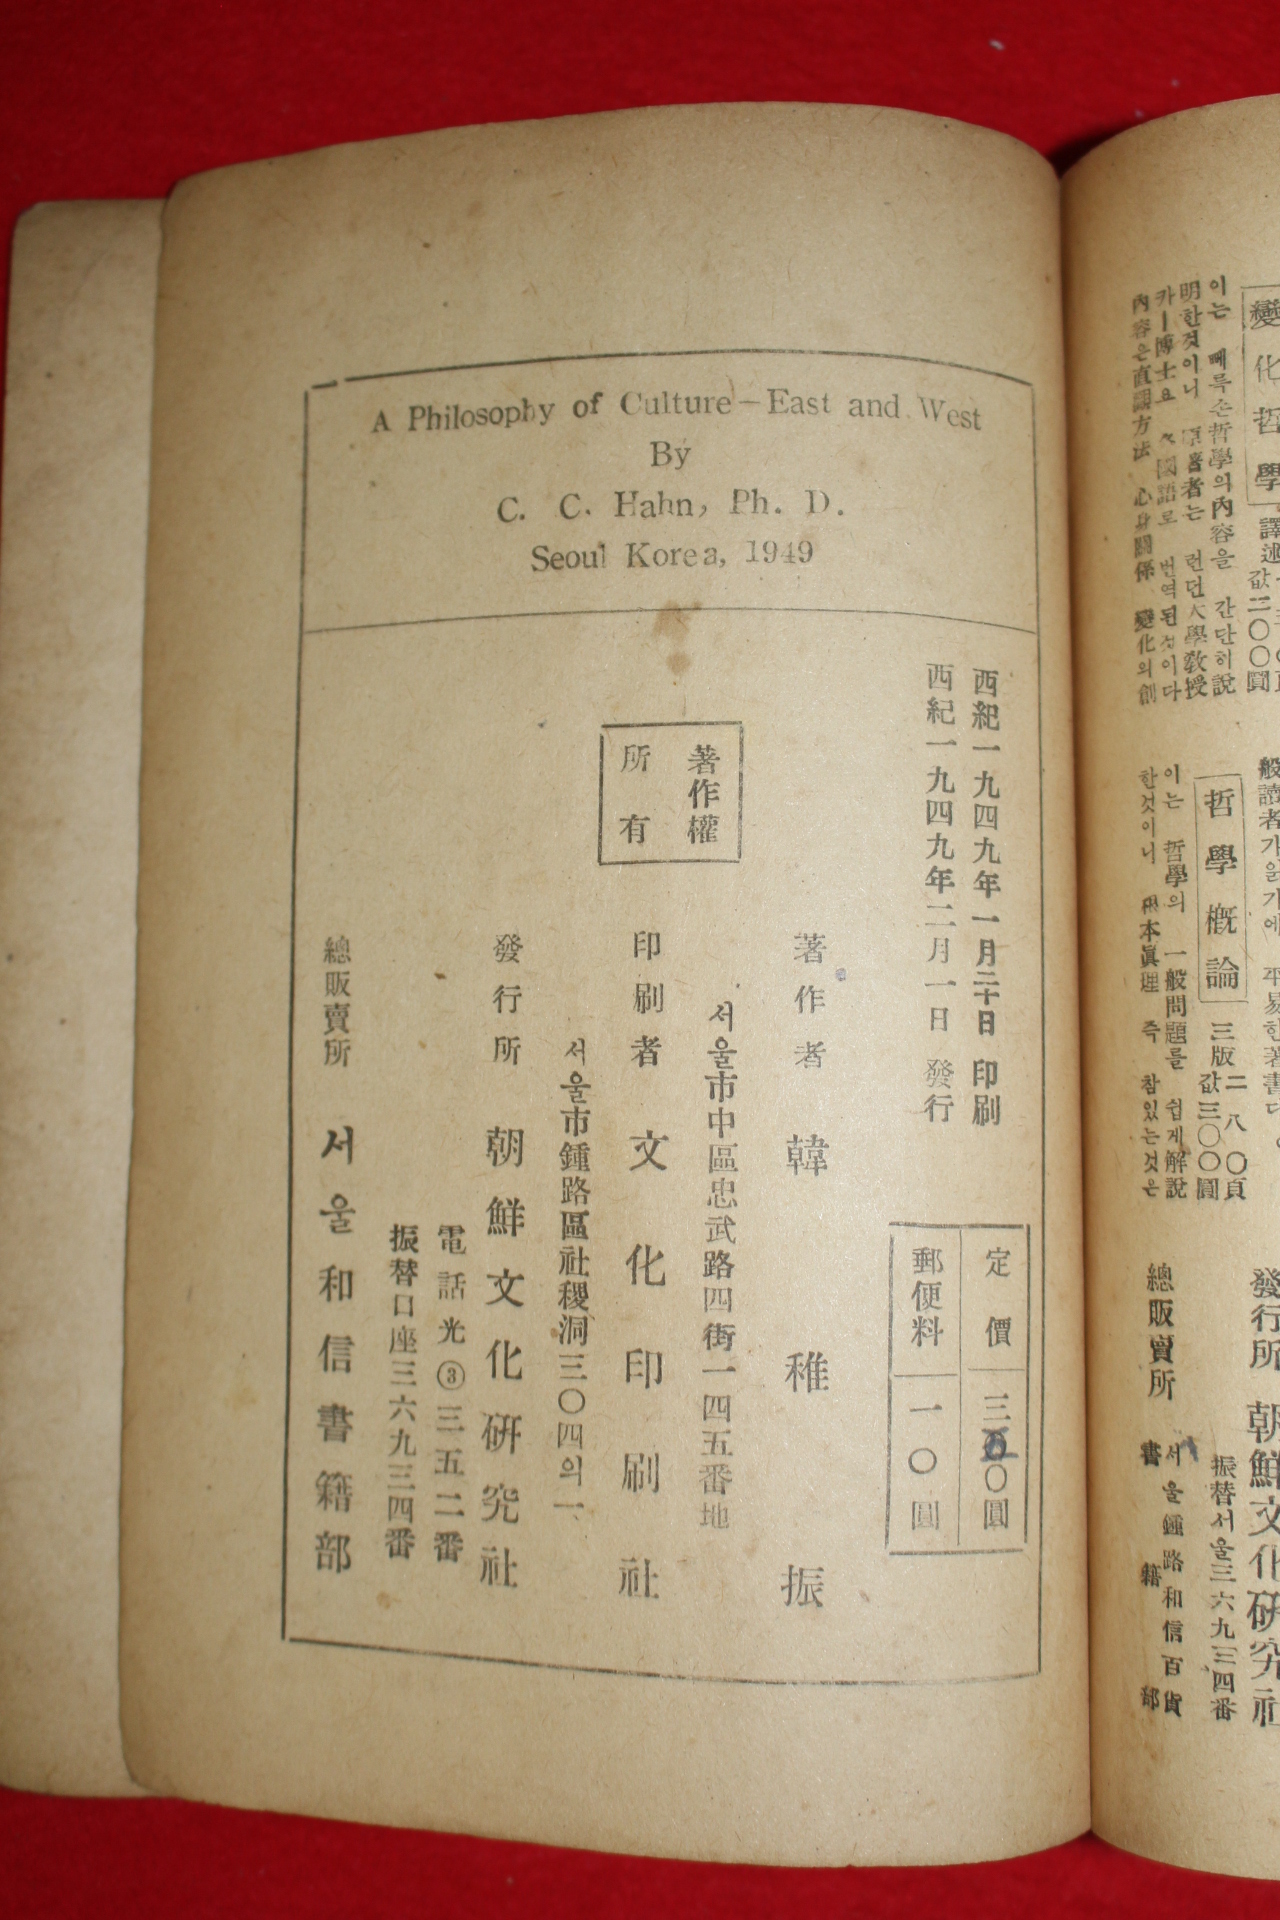 A Philosophy of Culture—East and West
By
C. C. Hahn, Ph. D.
Seoul Korea, 1949
西紀一九四九年一月二十日 印刷
西紀一九四九年二月一日 發行
定價 三 〇圓
郵便料 一〇圓
著作權
所有
著作者 韓稚振
서울市中區忠武路四街一四五番地
印刷者 文化印刷社
서울市鍾路區社稷洞三〇四의一
發行所 朝鮮文化硏究社
電話光③三五二番
振替口座三六九三四番
總販賣所 서울和信書籍部
變化哲學
譯述
값二〇〇圓
이는 뻬륵손哲學의內容을 간단히說
明한것이니 原著者는 런던大學敎授
카ー博士요 國語로 번역된것이다
內容은直觀方法 心身關係 變化의創
般讀者가읽기에 平易한著書다
哲學槪論
三版 二八〇頁
값三〇〇圓
이는 哲學의 一般問題를 쉽게解說
한것이니 根本眞理 즉 참있는것은
發行所 朝鮮文化硏究社
振替서울三六九三四番
總販賣所 서울鍾路和信百貨
書籍部